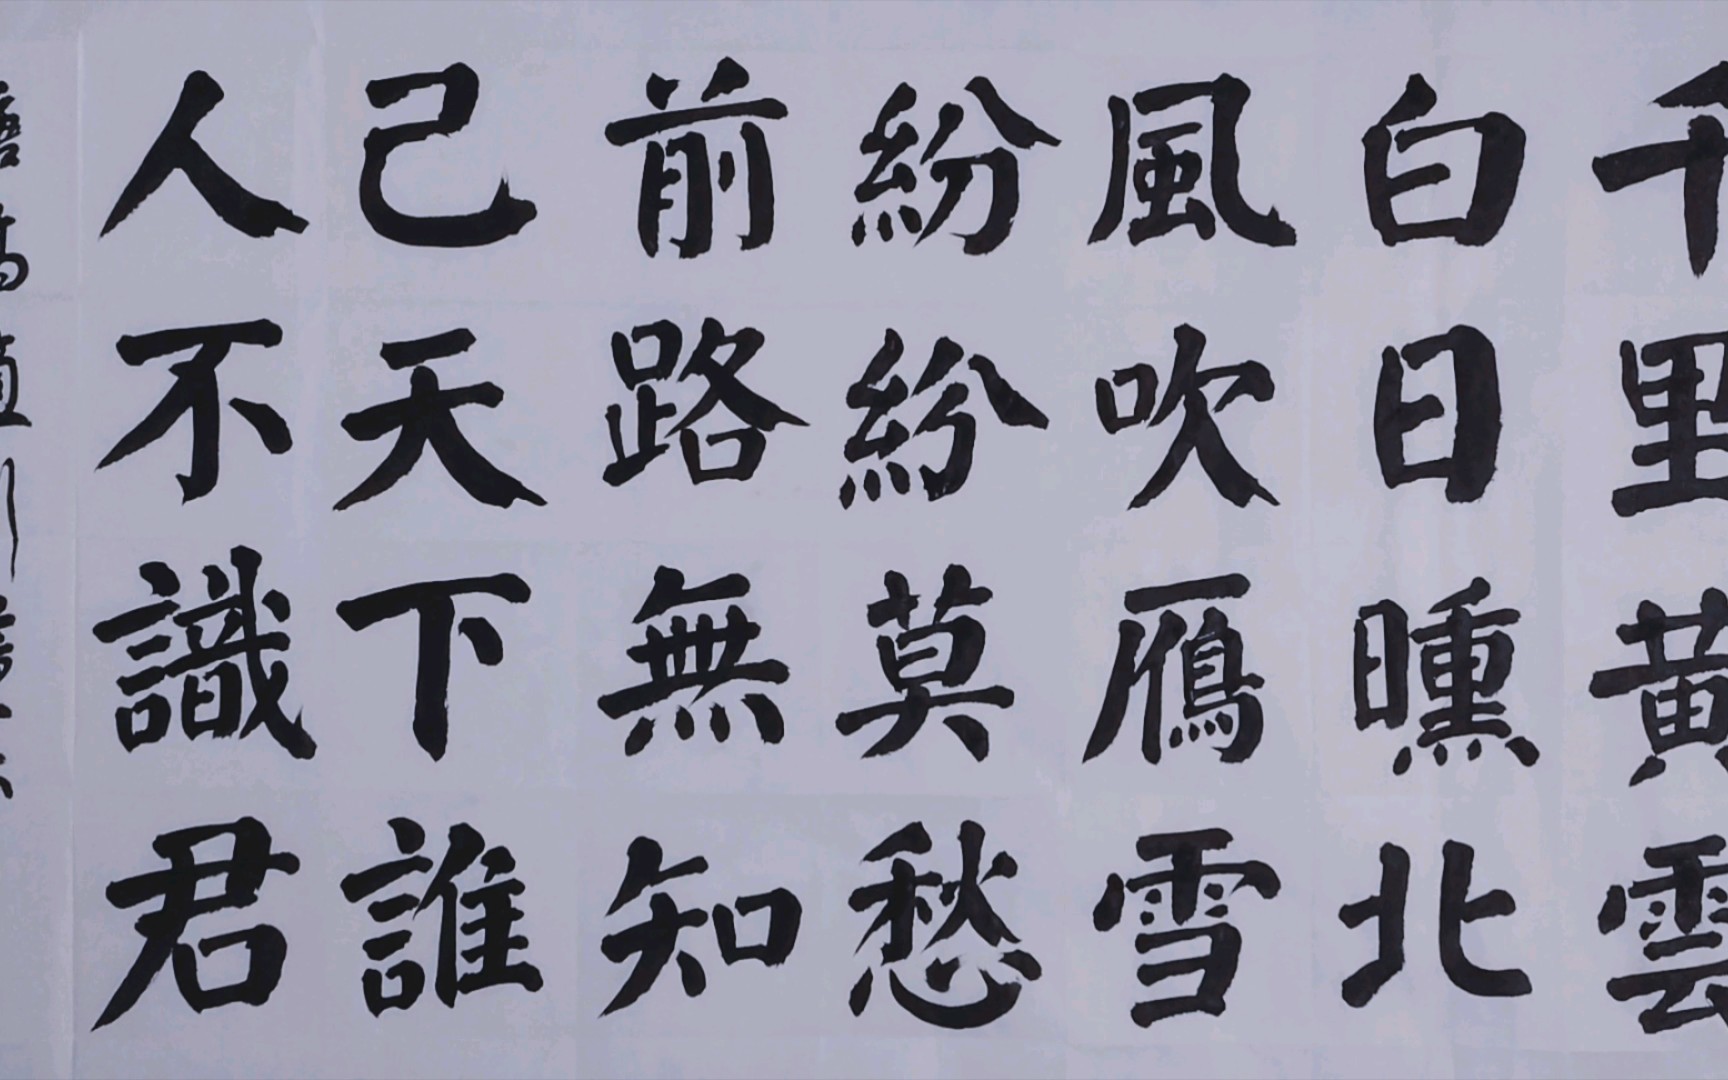 千里黄雲
白日曛北
風吹鴈雪
紛紛莫愁
前路無知
己天下誰
人不識君